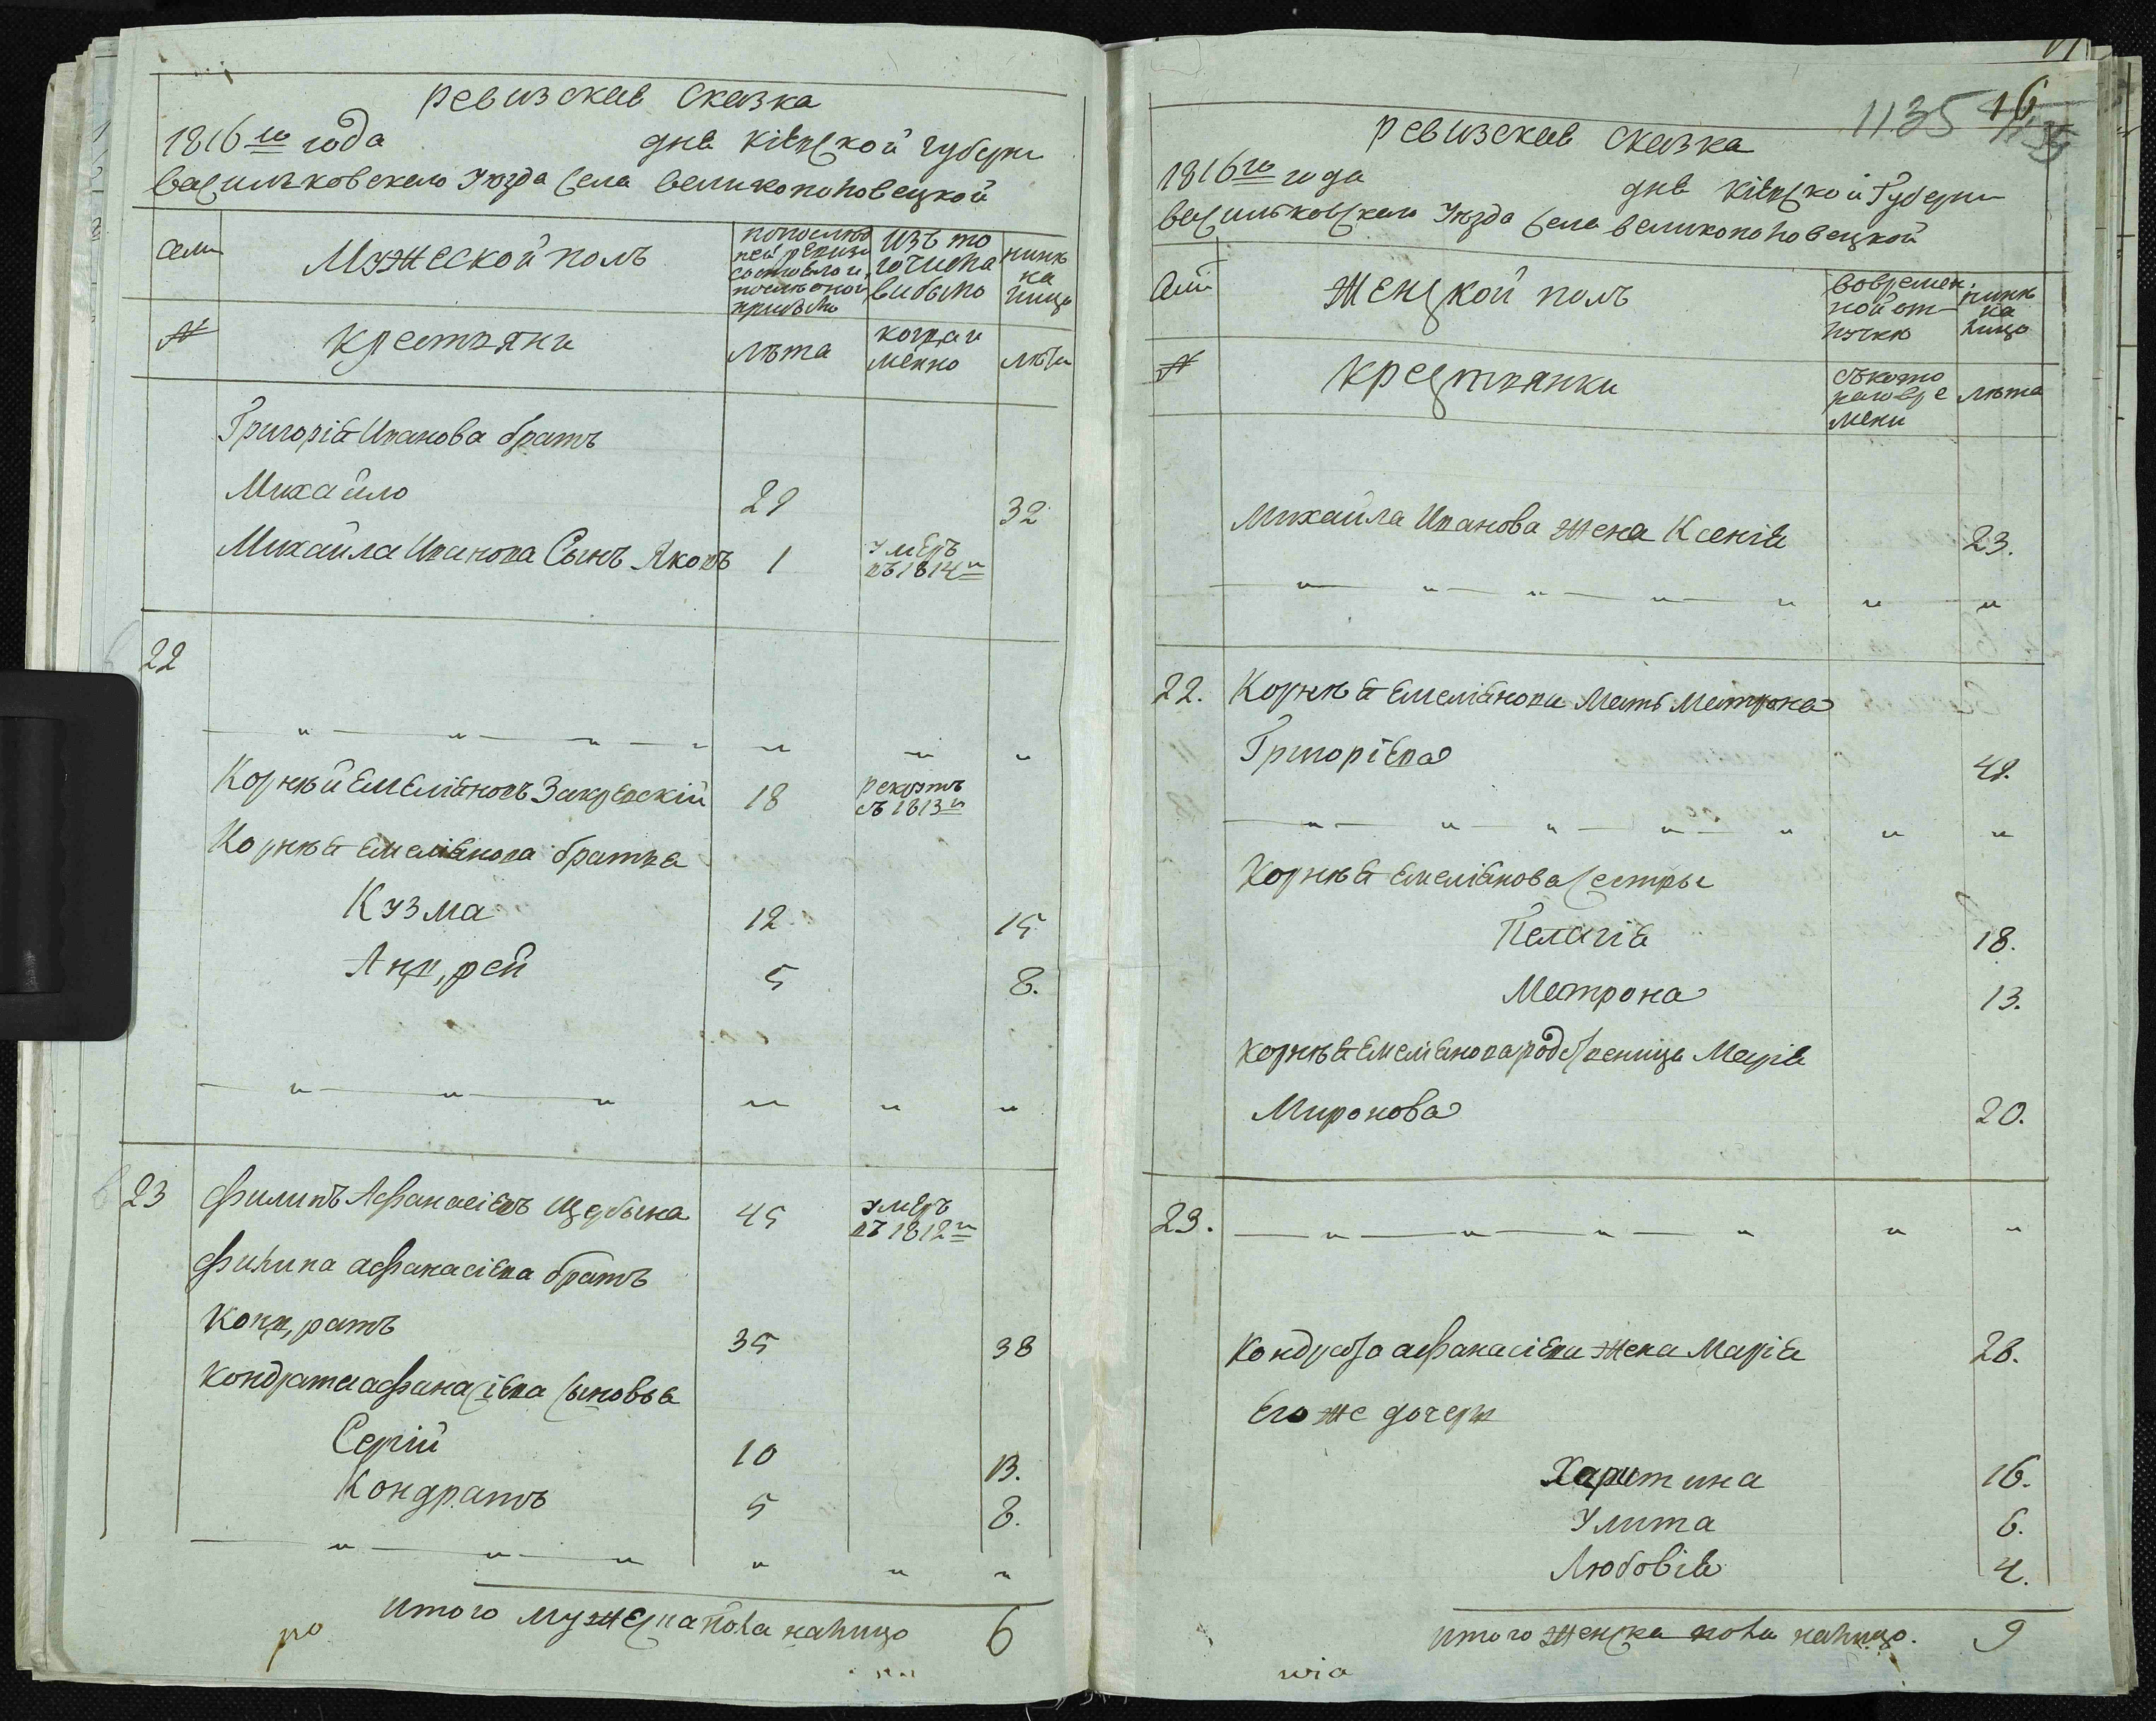 ревизская сказка
1816го года дня кіевской губерни
васильковскаго уезда села великополовецкой
семи
Мужеской полъ
попослѣд
ней ревизи
состояло и
послѣ оной
прибыло
изъ то
го числа
выбыло
нинѣ
на
лицо
№
крестьяни
лѣта
когда и
менно
лѣта
Григорія Иванова братъ
Михайло 29 32
Михайла Иванова Сынъ Яковъ 1 умеръ
въ 1814м
22
Корнѣй Емеліановъ Закревскій 18 рекрутъ
съ 1813м
Корнѣя Емеліанова братья
Кузма 12. 15
Андрей 5 8.
23 Филипъ Афанасіевъ Щербина 45 умеръ
въ 1812м
Филипа афанасіева братъ
Кондратъ 35 38
Кондрата афанасіева сыновья
Сергій 10 13.
Кондратъ 5 8.
итого мужеска пола налицо 6
ро
1135
16
ревизская сказка
1816го года дня кіевской Губерни
васильковскаго уезда села великополовецкой
семи
женской полъ
вовремен
ной от-
лучке
нинѣ
на
лицо
№
крестьянки
съ кото
раго вре
мени
лѣта
Михайла Иванова жена Ксенія 23.
22. Корнѣя Емеліанова мать Матрона
Григоріева 48.
Корнѣя Емеліанова сестры
Пелагія 18.
Матрона 13.
Корнѣя Емеліанова родственица Марія
Миронова 20.
23.
Кондрата афанасіева жена Марія 28.
Его же дочери
Харитина 16.
Улита 6.
Любовія 4.
итого женска пола налицо. 9